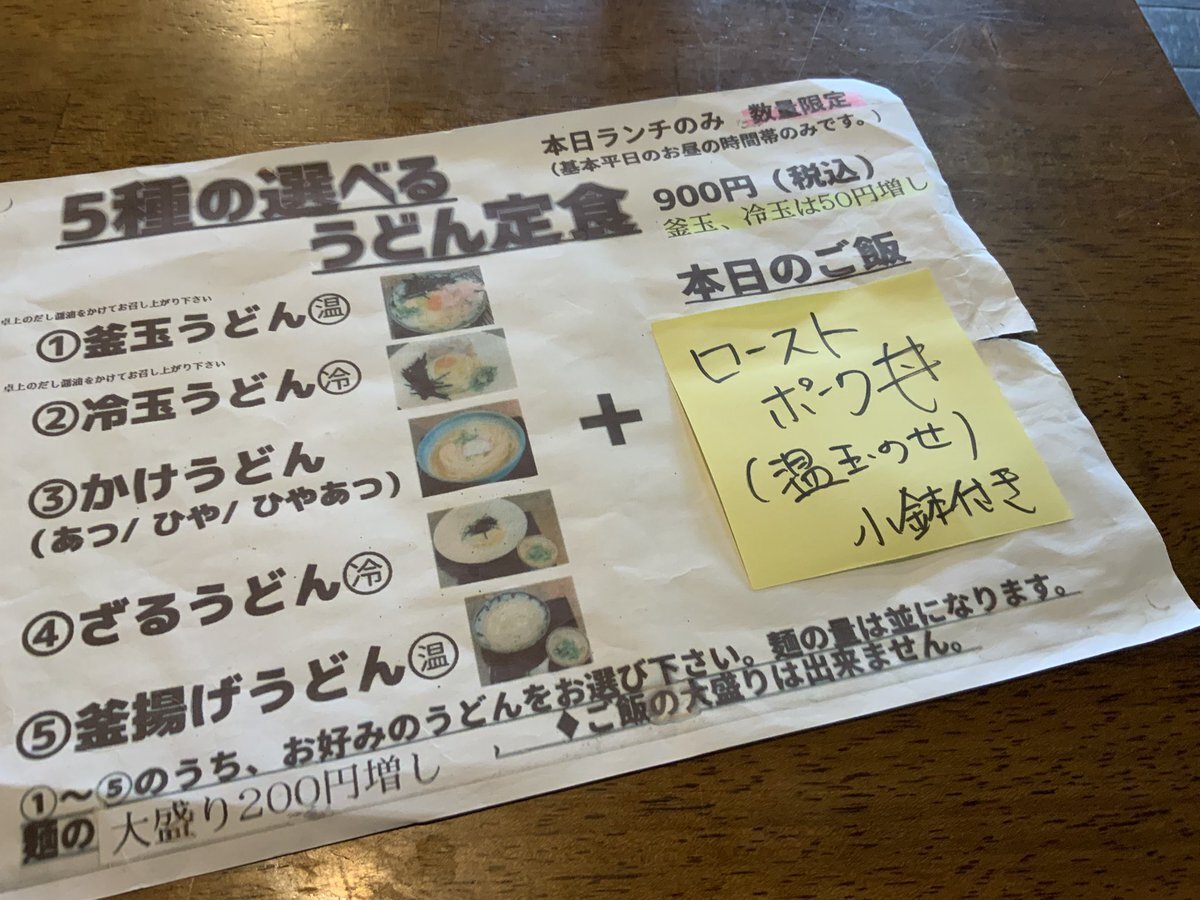 本日ランチのみ 数量限定
(基本平日のお昼の時間帯のみです。)
5種の選べる
うどん定食
900円(税込)
釜玉、冷玉は50円増し
卓上のだし醤油をかけてお召し上がり下さい
①釜玉うどん㊀温
卓上のだし醤油をかけてお召し上がり下さい
②冷玉うどん 冷
③かけうどん
(あつ/ひや/ひやあつ)
④ざるうどん 冷
⑤釜揚げうどん 温
+
本日のご飯
ロースト
ポーク丼
(温玉のせ)
小鉢付き
①〜⑤のうち、お好みのうどんをお選び下さい。麺の量は並になります。
◆ご飯の大盛りは出来ません。
麺の 大盛り200円増し